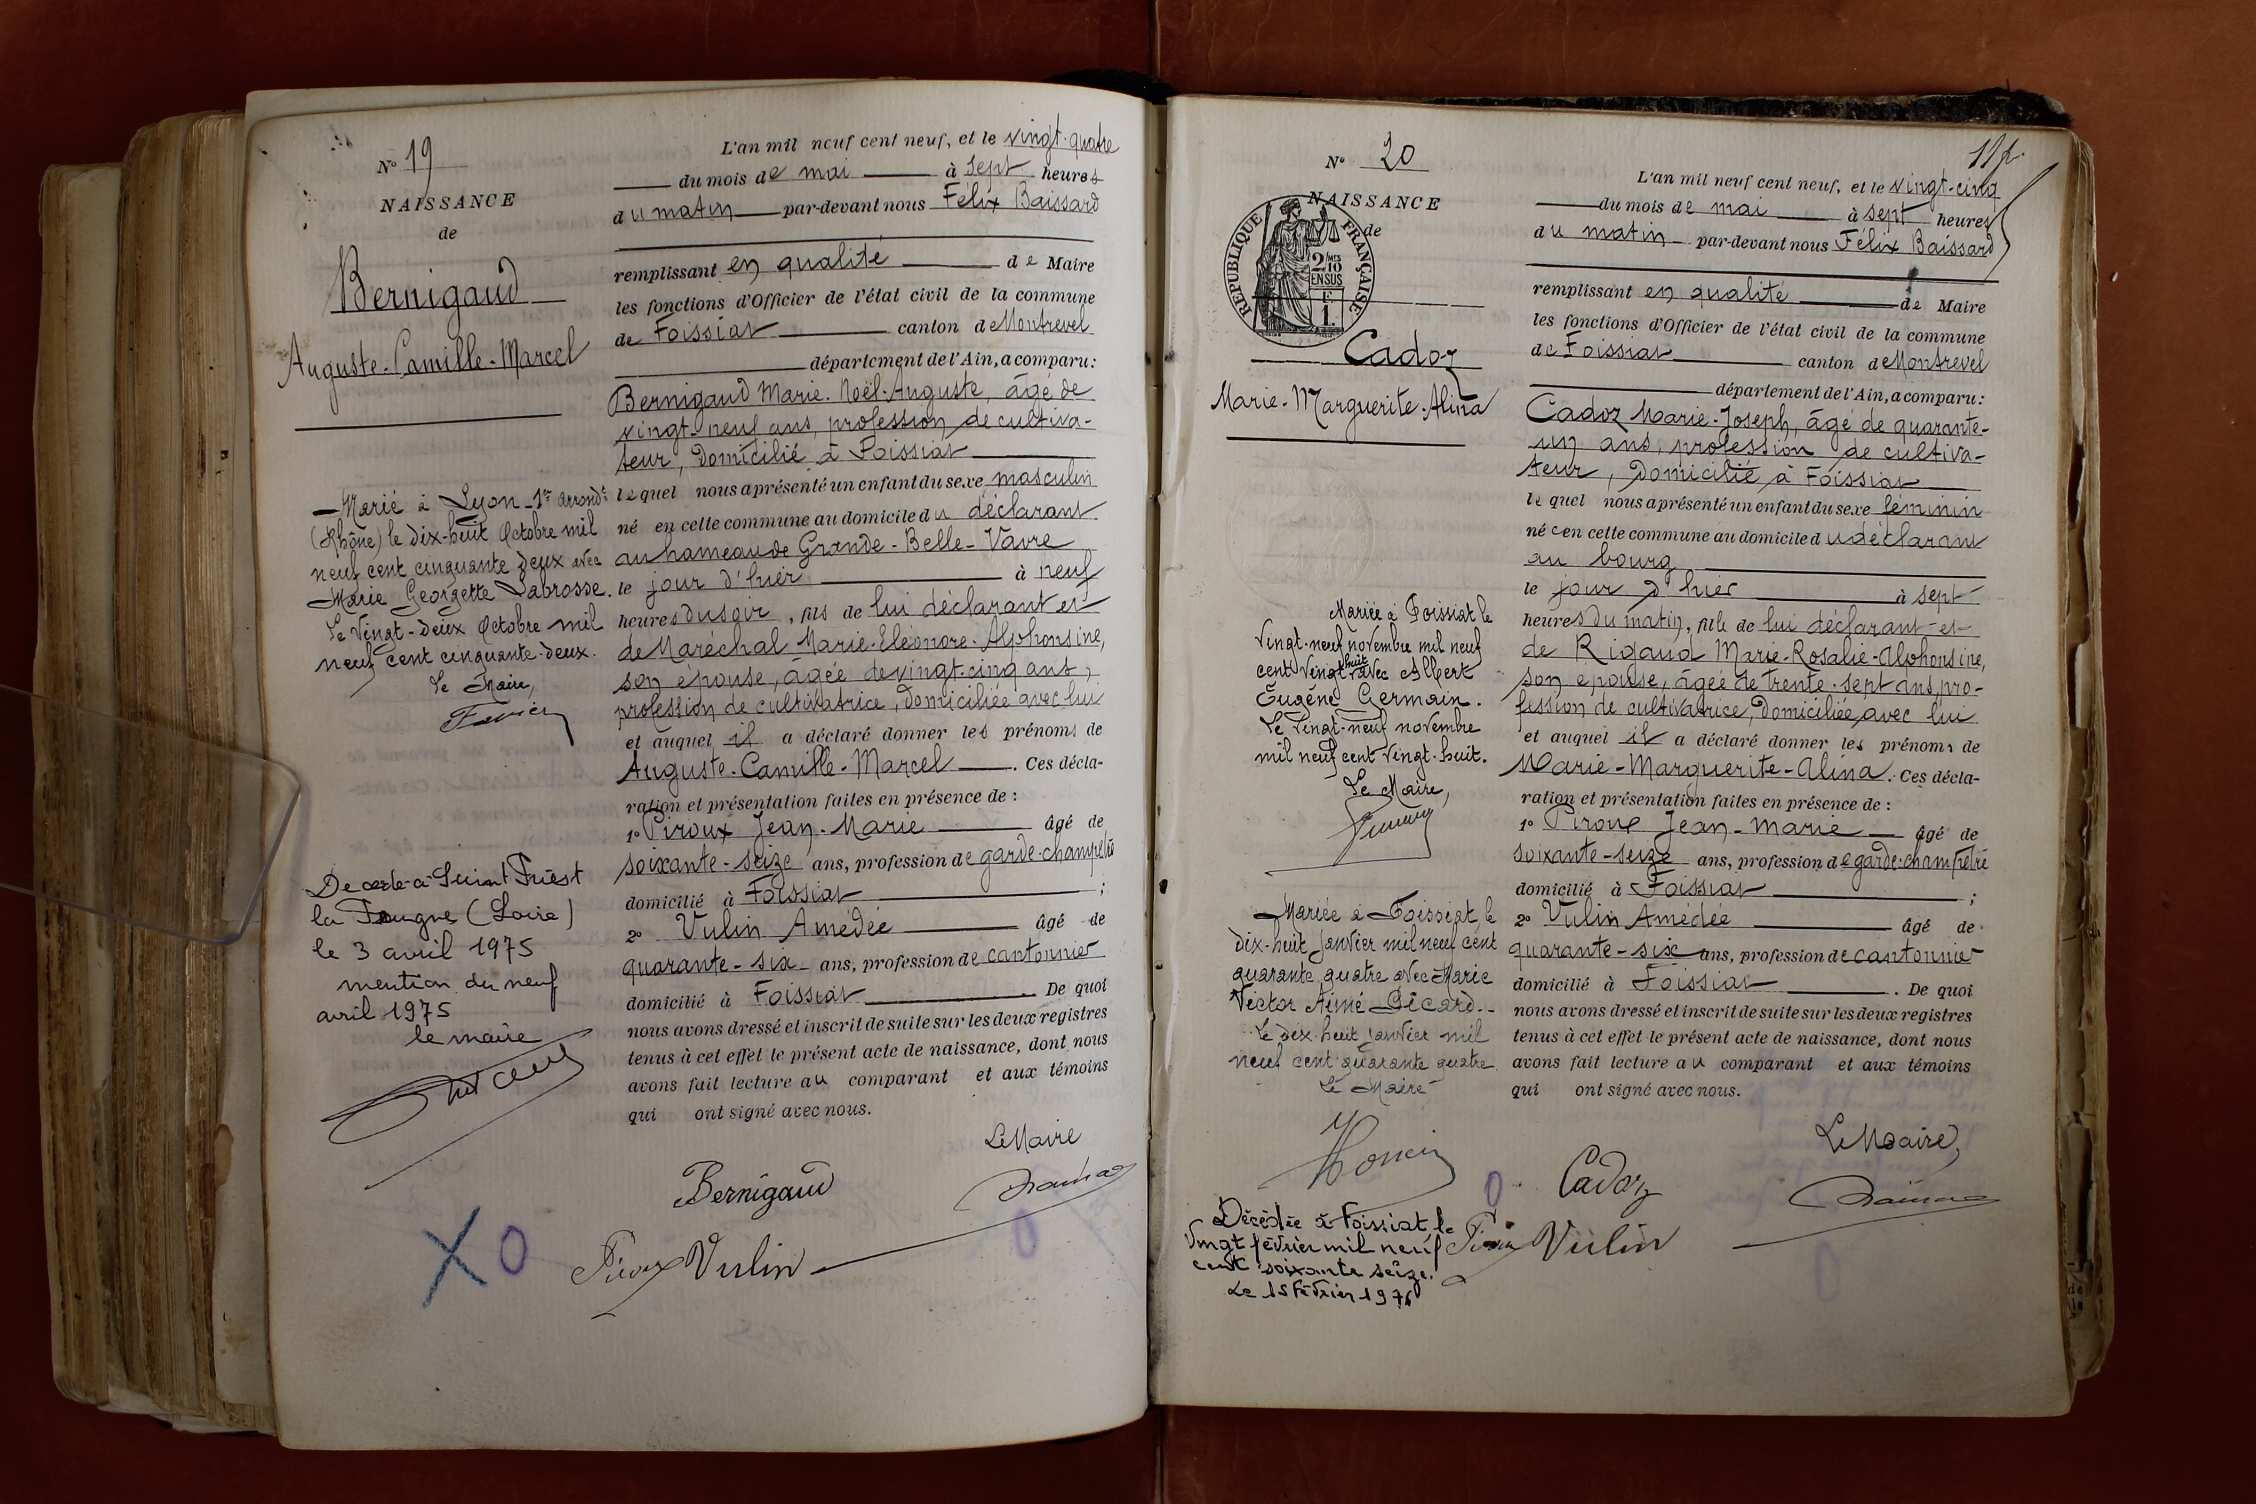 N° 19
NAISSANCE
de
Bernigaud
Auguste-Camille-Marcel
Marié à Lyon 1er arrondt
(Rhône) le dix-huit Octobre mil
neuf cent cinquante deux avec
Marie Georgette Labrosse.
Le Vingt-deux Octobre mil
neuf cent cinquante-deux.
Le Maire,
Décédé à Saint Priest
la (Loire)
le 3 avril 1975
mention du neuf
avril 1975
le maire
L'an mil neuf cent neuf, et le vingt-quatre
du mois de mai à sept heures
du matin par-devant nous Félix Baissard
remplissant en qualité de Maire
les fonctions d'Officier de l'état civil de la commune
de Foissiat canton de Montrevel
département de l'Ain, a comparu:
Bernigaud Marie-Noël-Auguste, âgé de
vingt-neuf ans, profession de cultiva-
teur, domicilié à Foissiat
lequel nous a présenté un enfant du sexe masculin
né en cette commune au domicile du déclarant
au hameau de Grande-Belle-Vavre
le jour d'hier à neuf
heures du soir, fils de lui déclarant et
de Maréchal Marie-Eléonore-Alphonsine,
son épouse, âgée de vingt-cinq ans,
profession de cultivatrice, domiciliée avec lui
et auquel il a déclaré donner les prénoms de
Auguste-Camille-Marcel. Ces décla-
ration et présentation faites en présence de :
1° Piroux Jean-Marie âgé de
soixante-seize ans, profession de garde-champêtre
domicilié à Foissiat ;
2° Vulin Amédée âgé de
quarante-six ans, profession de cantonnier
domicilié à Foissiat. De quoi
nous avons dressé et inscrit de suite sur les deux registres
tenus à cet effet le présent acte de naissance, dont nous
avons fait lecture au comparant et aux témoins
qui ont signé avec nous.
Le Maire
Bernigaud
Piroux Vulin
X O
O
N° 20
NAISSANCE
de
REPUBLIQUE FRANÇAISE
2/10
EN SUS
F
1.
Cadoz
Marie-Marguerite-Alina
Mariée à Foissiat le
vingt-neuf novembre mil neuf
cent vingt huit avec Albert
Eugène Germain.
Le vingt-neuf novembre
mil neuf cent vingt-huit.
Le Maire,
Mariée à Foissiat le
dix-huit janvier mil neuf cent
quarante quatre avec Marie
Victor Aimé
Le dix-huit janvier mil
neuf cent quarante quatre
Le Maire
Décédée à Foissiat le
Vingt février mil neuf
cent soixante seize.
Le février 1976
L'an mil neuf cent neuf, et le vingt-cinq
du mois de mai à sept heures
du matin par-devant nous Félix Baissard
remplissant en qualité de Maire
les fonctions d'Officier de l'état civil de la commune
de Foissiat canton de Montrevel
département de l'Ain, a comparu:
Cadoz Marie-Joseph, âgé de quarante-
un ans, profession de cultiva-
teur, domicilié à Foissiat
lequel nous a présenté un enfant du sexe féminin
née en cette commune au domicile du déclarant
au bourg
le jour d'hier à sept
heures du matin, fille de lui déclarant et
de Rigaud Marie-Rosalie-Alphonsine,
son épouse, âgée de trente-sept ans, pro-
fession de cultivatrice, domiciliée avec lui
et auquel il a déclaré donner les prénoms de
Marie-Marguerite-Alina. Ces décla-
ration et présentation faites en présence de :
1° Piroux Jean-Marie âgé de
soixante-seize ans, profession de garde-champêtre
domicilié à Foissiat ;
2° Vulin Amédée âgé de
quarante-six ans, profession de cantonnier
domicilié à Foissiat. De quoi
nous avons dressé et inscrit de suite sur les deux registres
tenus à cet effet le présent acte de naissance, dont nous
avons fait lecture au comparant et aux témoins
qui ont signé avec nous.
Le Maire,
O Cadoz
Piroux Vulin
O